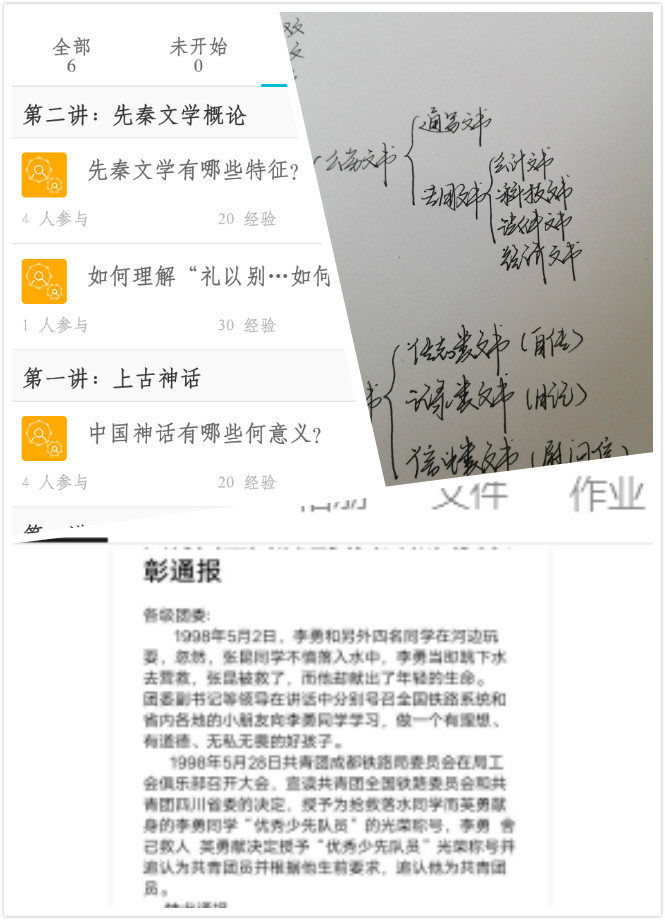 全部
6
未开始
0
第二讲：先秦文学概论
先秦文学有哪些特征?
4 人参与
20 经验
如何理解“礼以别…如何
1 人参与
30 经验
第一讲：上古神话
中国神话有哪些何意义?
4 人参与
20 经验
公务文书
通用文书
专用文书
会计文书
科技文书
法律文书
经济文书
传志类文书（自传）
记录类文书（日记）
信函类文书（慰问信）
文件
作业
彰通报
各级团委:
1998年5月2日，李勇和另外四名同学在河边玩
耍，忽然，张昆同学不慎落入水中，李勇当即跳下水
去营救，张昆被救了，而他却献出了年轻的生命。
团委副书记等领导在讲话中分别号召全国铁路系统和
省内各地的小朋友向李勇同学学习，做一个有理想、
有道德、无私无畏的好孩子。
1998年5月28日共青团成都铁路局委员会在局工
会俱乐部召开大会，宣读共青团全国铁路委员会和共
青团四川省委的决定，授予为抢救落水同学而英勇献
身的李勇同学“优秀少先队员”的光荣称号，李勇 舍
己救人 英勇献决定授予“优秀少先队员”光荣称号并
追认为共青团员并根据他生前要求，追认他为共青团
员。